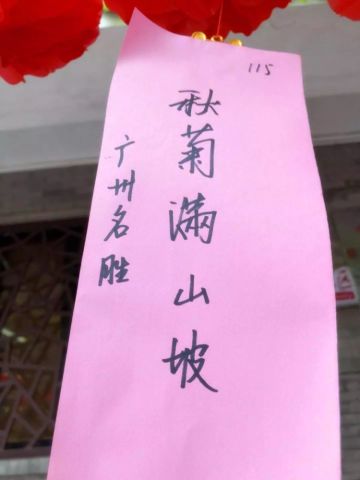 115
秋菊满山坡
广州名胜